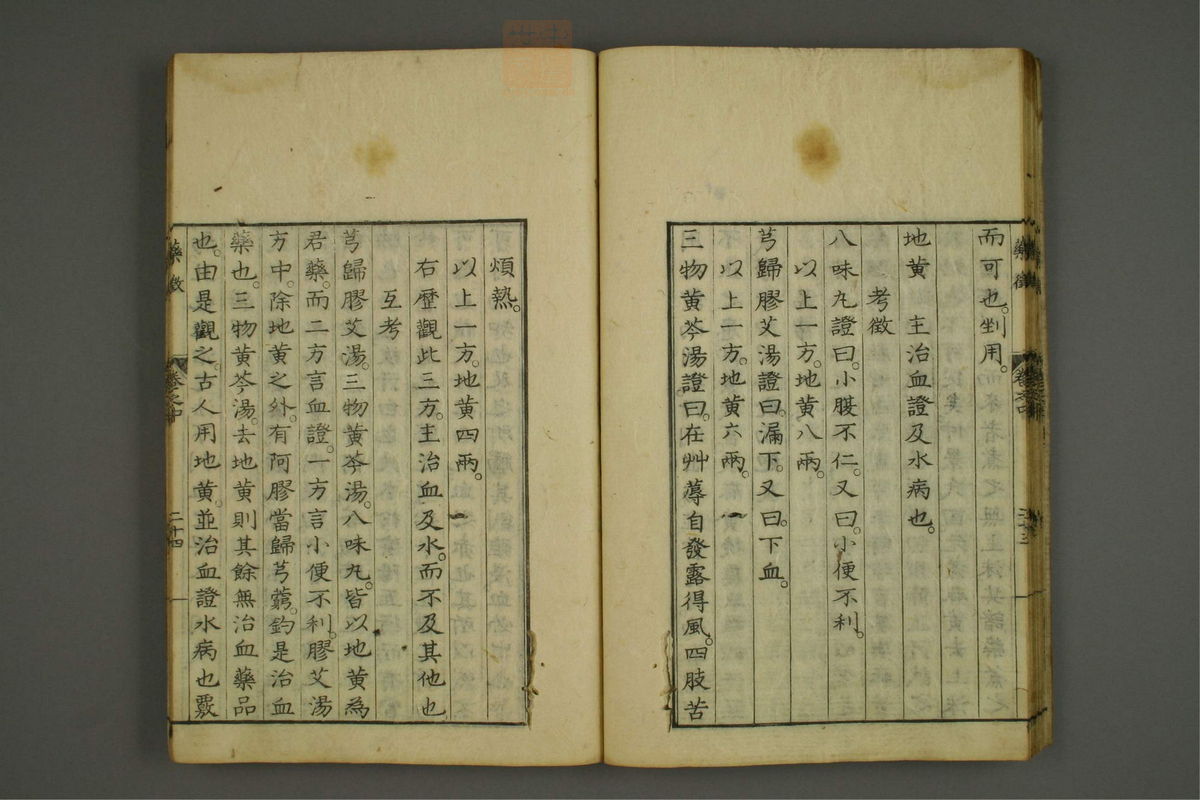 而可也。剉用。
地黃　主治血證及水病也。
考徵
八味丸證曰。小腹不仁。又曰。小便不利。
以上一方。地黃八兩。
芎歸膠艾湯證曰。漏下。又曰。下血。
以上一方。地黃六兩。
三物黃芩湯證曰。在艸蓐自發露得風。四肢苦
煩熱。
以上一方。地黃四兩。
右歷觀此三方。主治血及水。而不及其他也
互考
芎歸膠艾湯。三物黃芩湯。八味丸。皆以地黃為
君藥。而二方言血證。一方言小便不利。膠艾湯
方中。除地黃之外。有阿膠當歸芎藭。鈞是治血
藥也。三物黃芩湯。去地黃則其餘無治血藥品
也。由是觀之。古人用地黃。並治血證水病也覈
藥徵
卷之中
二十四
藥徵
卷之中
二十三